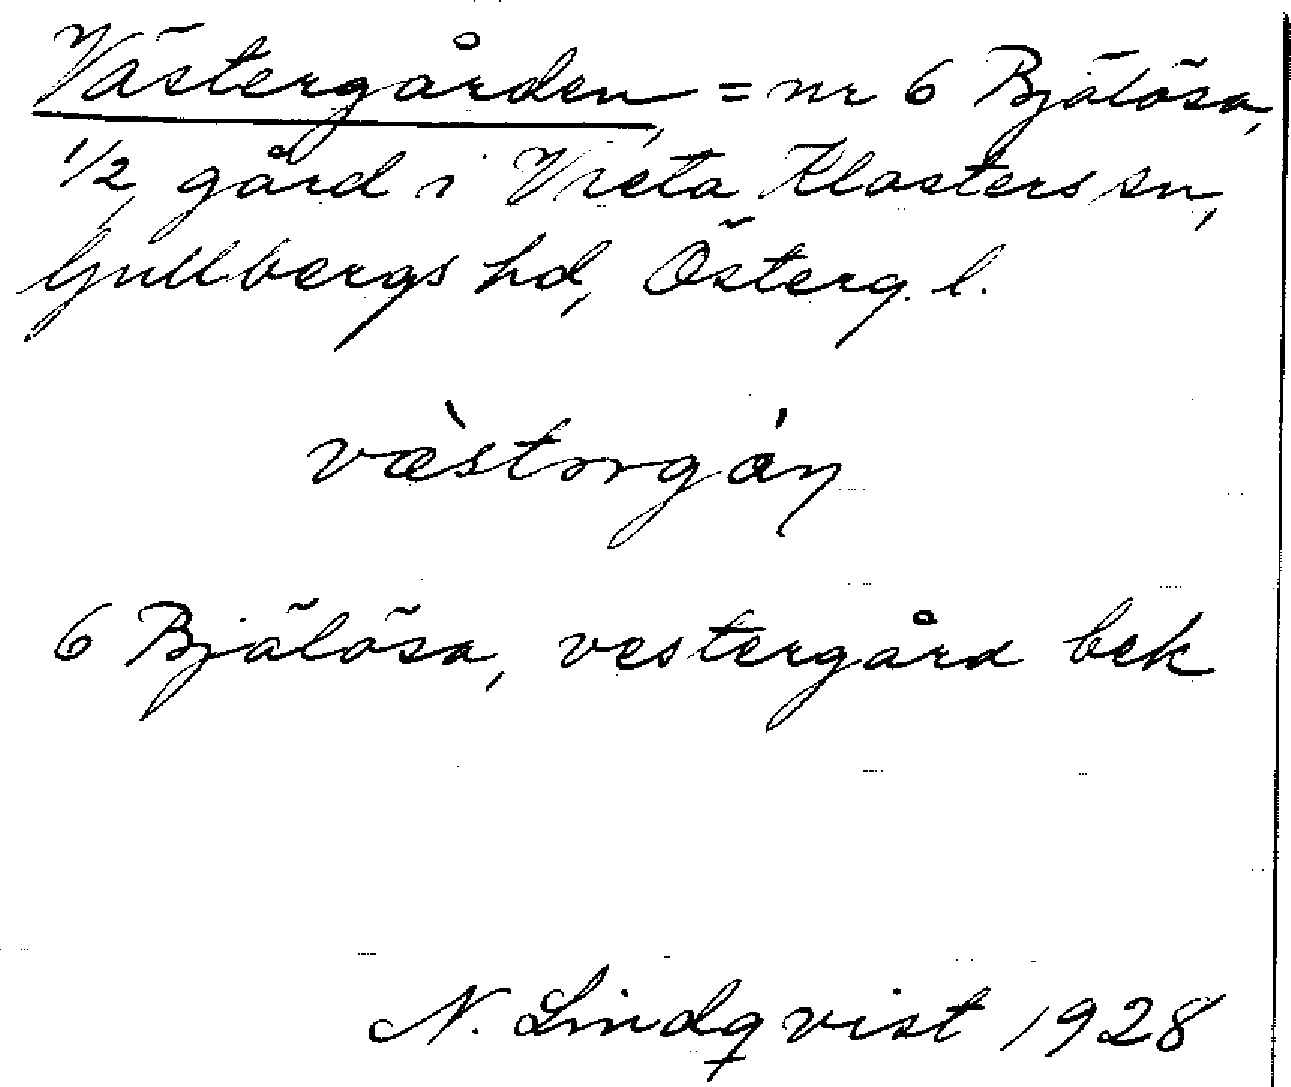 Västergården, = nr 6 Bjälösa,
1/2 gård i Vreta Klosters sn,
Gullbergs hd, Österg. l.
væ̀storgán
6 Bjälösa, vestergård bek
N. Lindqvist 1928